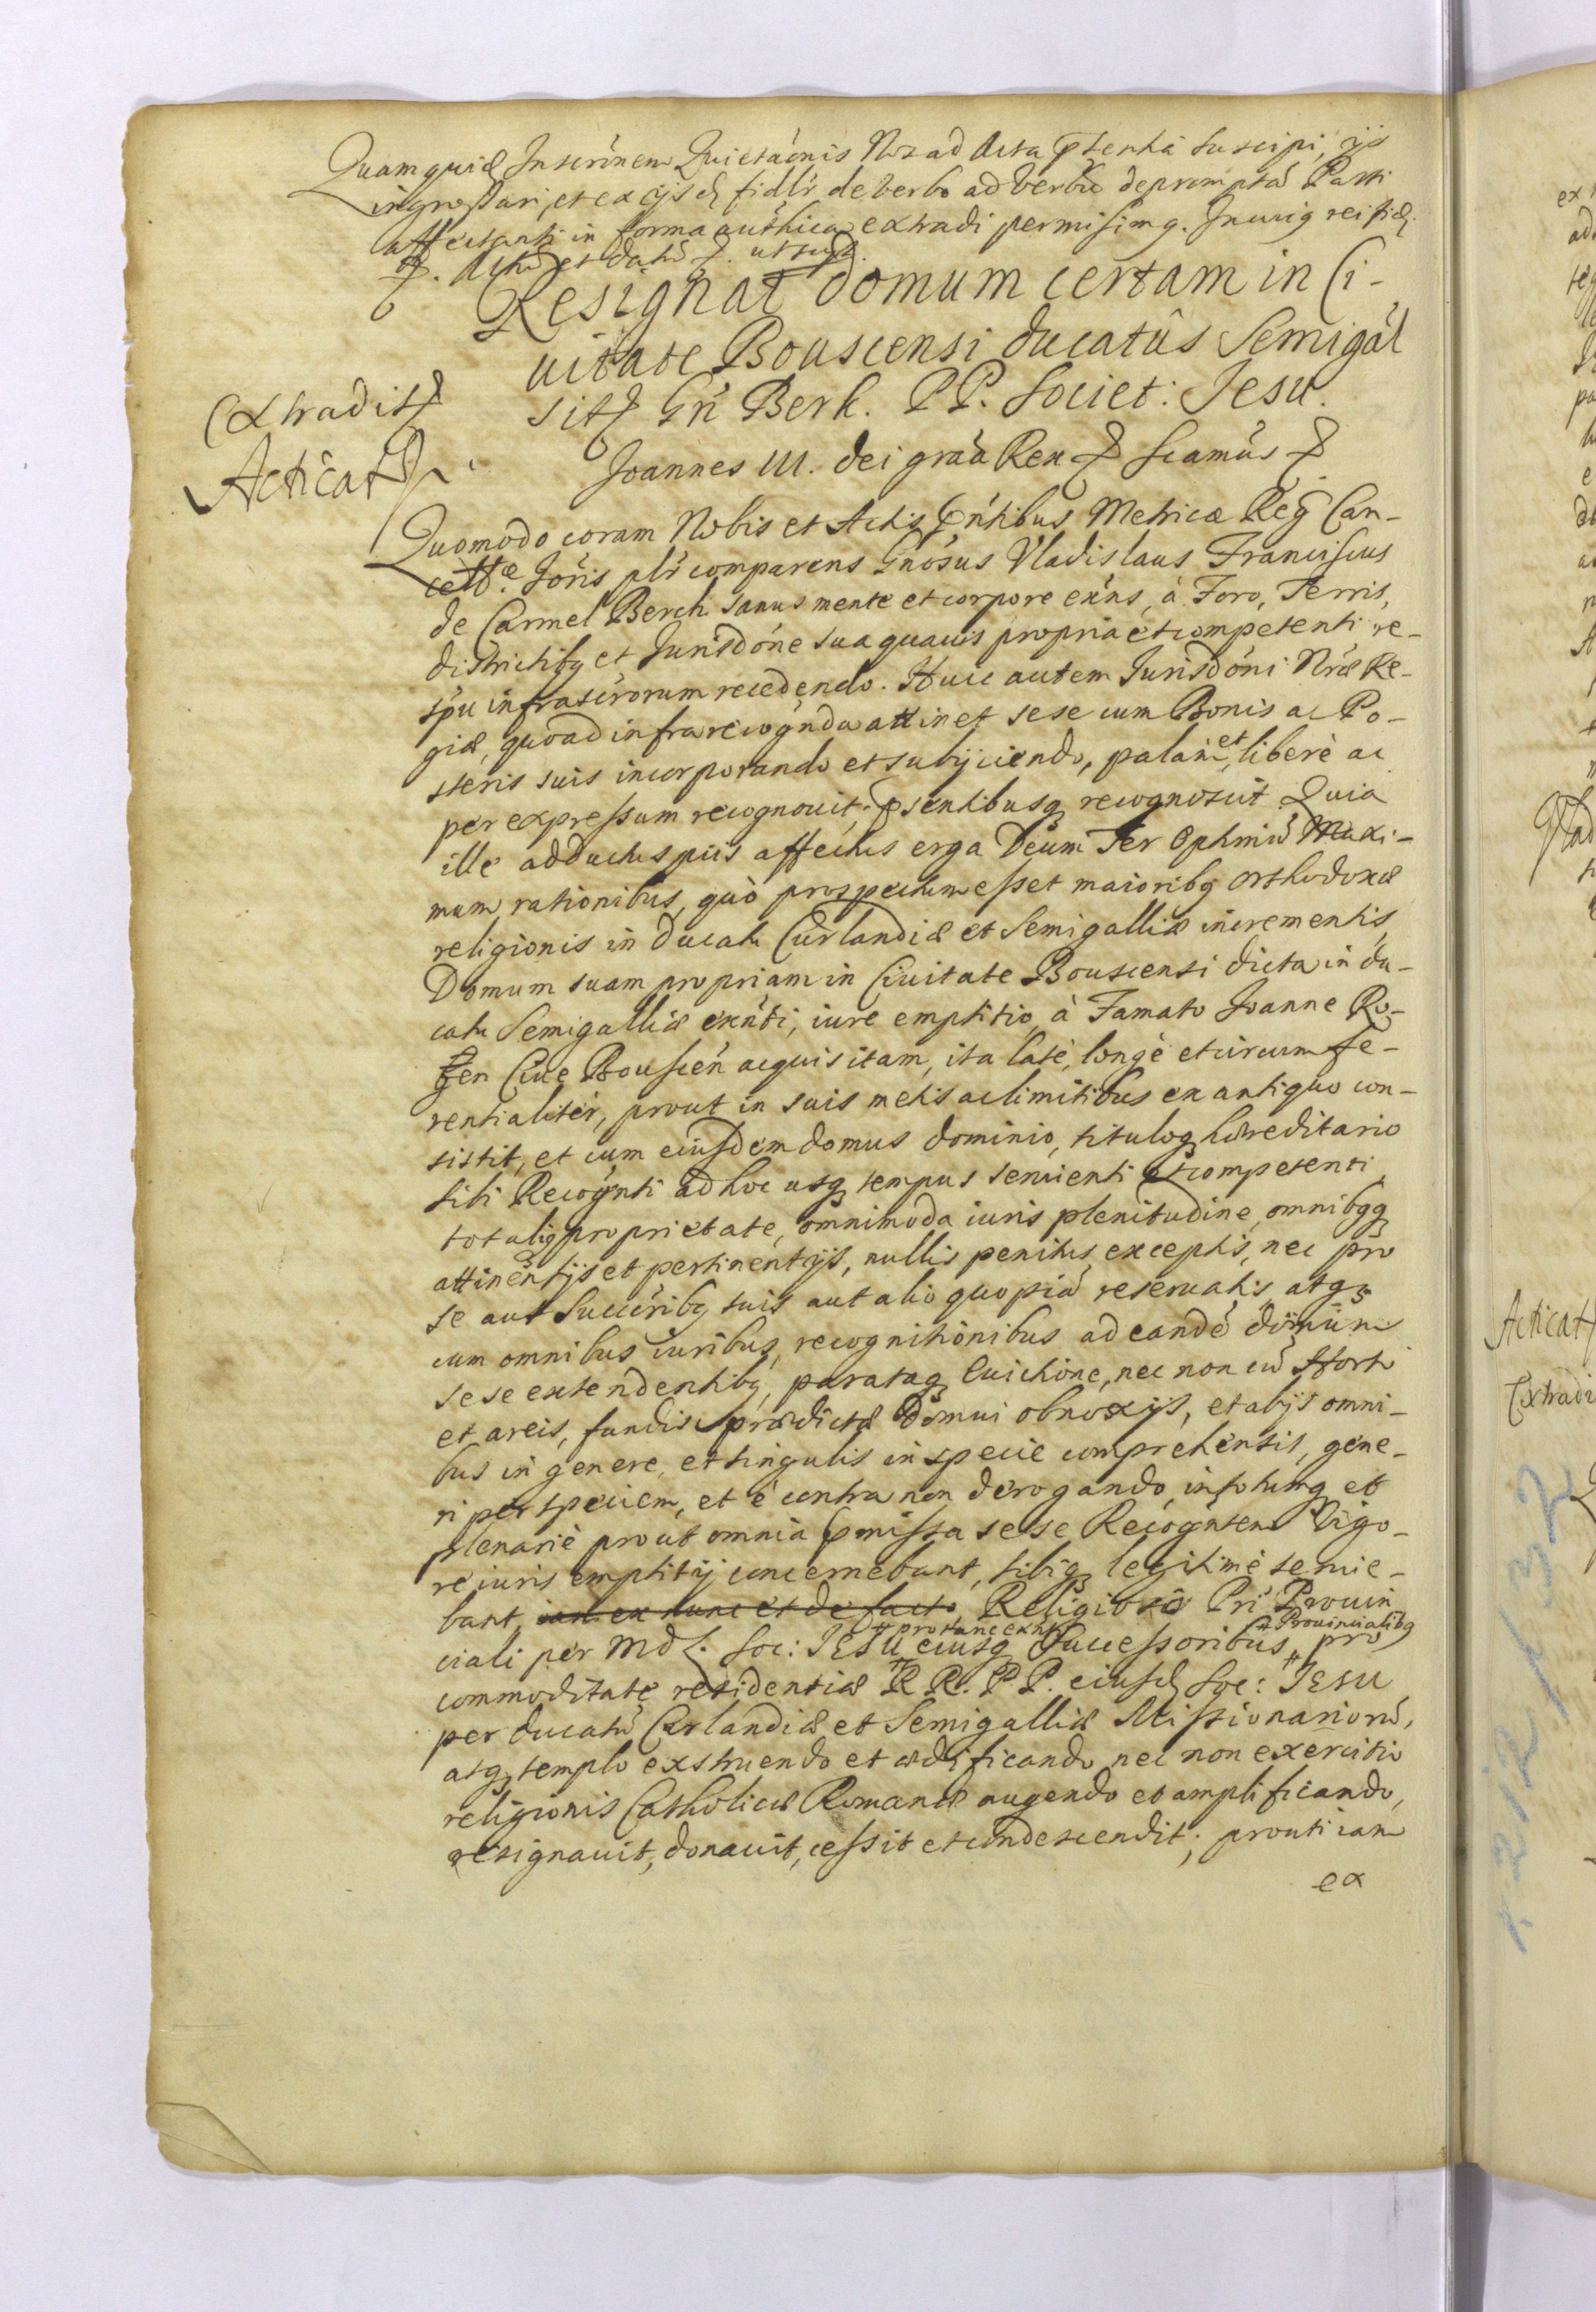 Quamquid Inscrönem Quietäonis Nos ad Acta pstentia suscipi, ijs
ingrossari, et ex ijsd fidlr de verbo ad verbu depromptā Parti
affectanti in forma authica extradi permisimq. In cuiq rei fid
etc. Actū et datū etc. ut supra.
Resignat domum certam in Ci-
uitate Bouscensi ducatûs Semigal
sit Gn Berk. PP. Societ: Jesu.
Extradit
Acticat
Joannes III. dei graā Rex etc. scamūs etc.
Quomodo coram Nobis et Actis pntibus Metricæ Reg Can-
cellæ. Joris plr comparens Gnosus Vladislaus Franciscus
de Carmel Berch. sanus mente et corpore exns, à Foro, Terris,
districtibq et Jurisdóne sua quauis propria et competenti re-
spu infrascrorum recedendo. Huic autem Jurisdóni Nræ Re-
giæ, quoad infrarecognda attinet sese cum Bonis ac Po-
steris suis incorporando et subijciendo, palàm et liberè ac
per expressum recognouit, psentibusq recognoscit. Quia
ille adductus piis affectus erga Deum Ter Optimū Maxi-
mum rationibus, quò prospectum esset maioribq orthodoxæ
religionis in ducatu Curlandiæ et Semigalliæ incrementis,
Domum suam propriam in Ciuitate Bouscensi dicta in du-
catu Semigalliæ exnti, iure emptitio à Famato Joanne Ro-
gen Ciue Bouscen acquisitam, ita latè, longè et circumfe-
rentialiter, prout in suis metis ac limitibus ex antiquo con-
sistit, et cum eiusdem domus dominio, tituloq hæreditario
sibi Recognti ad hoc usq tempus seruienti et competenti,
totaliq proprietate, omnimoda iuris plenitudine, omnibqq
attinentijs et pertinentijs, nullis penitus exceptis, nec pro
se aut Succeribq suis aut alio quopiā reseruatis, atq
cum omnibus iuribus, recognitionibus ad eandē domum
sese extendentibq, parataq euictione, nec non cū Horti
et areis, fundis prædictæ Domui obnoxijs, et alijs omni-
bus in genere, et singulis in specie comprehensis, gene-
ri per speciem, et è contra non derogando, in totumq et
plenariè prout omnia pmissa sese Recogntem Vigo-
re iuris emptitij concernebant, sibiq legitimè seruie-
bant, iam ex nunc et de facto, Religioso Pri Prouin
ciali per MDL. Soc: JESU # pro tunc exnti eiusq Successoribus # Prouincialibq pro
commoditate residentiæ RR. PP. eiusd Soc: JESU
per ducatū Curlandiæ et Semigalliæ Missionariorū,
atq templo exstruendo et ædificando nec non exercitio
religionis Catholicæ Romanæ augendo et amplificando,
resignauit, donauit, cessit et condescendit; prout iam
ex